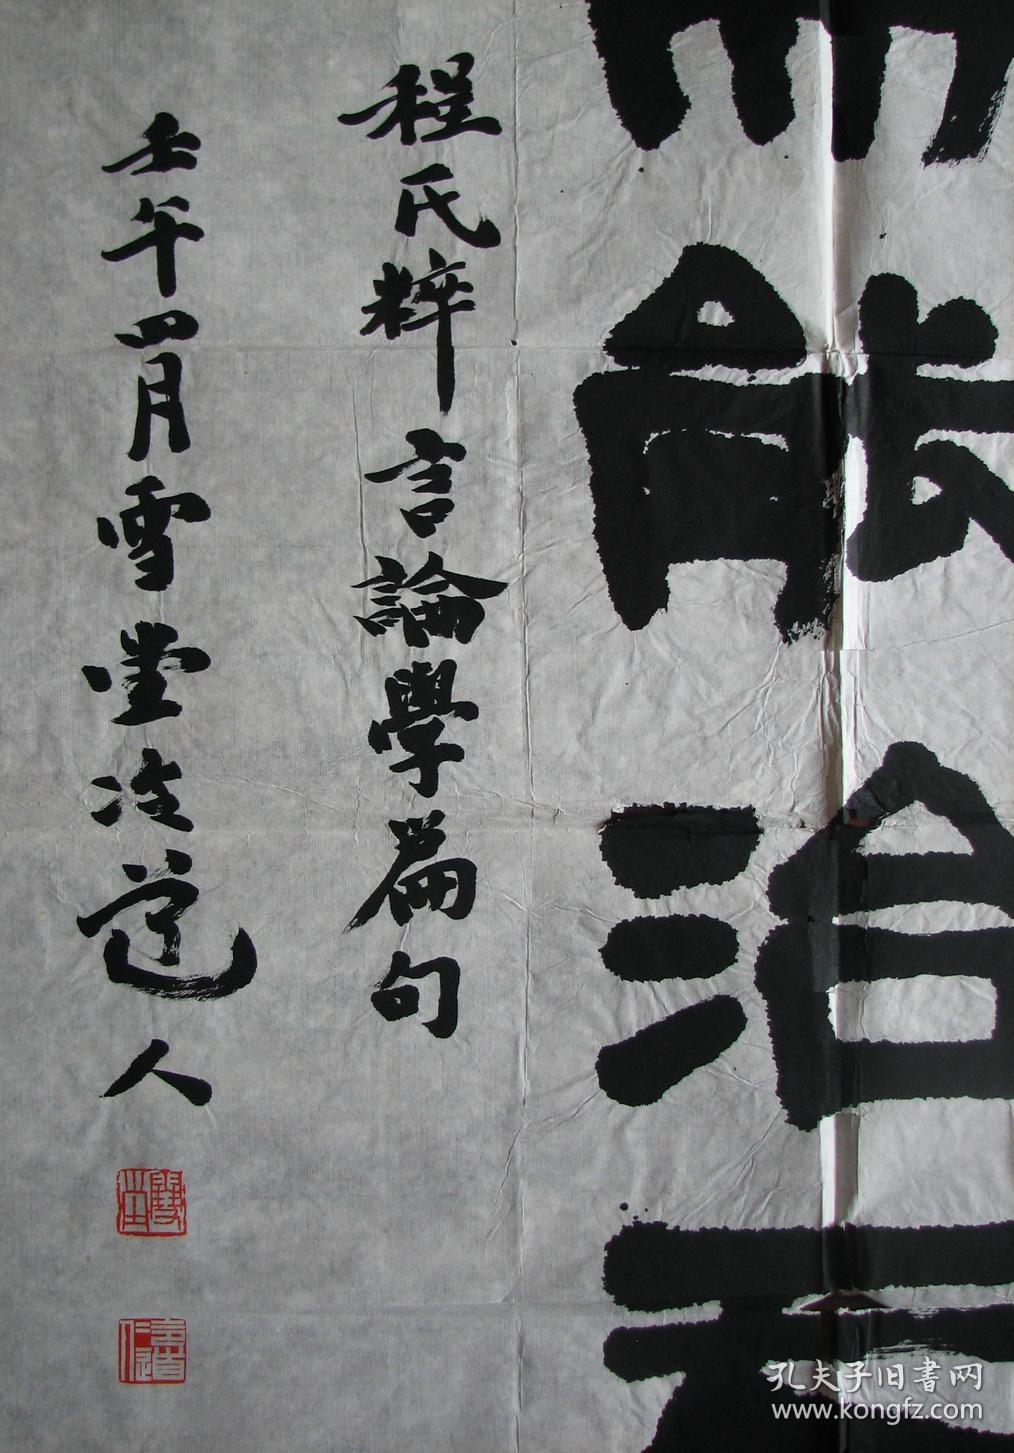 能治
程氏粹言論學篇句
壬午四月雪堂冷道人
孔夫子旧書网
www.kongfz.com